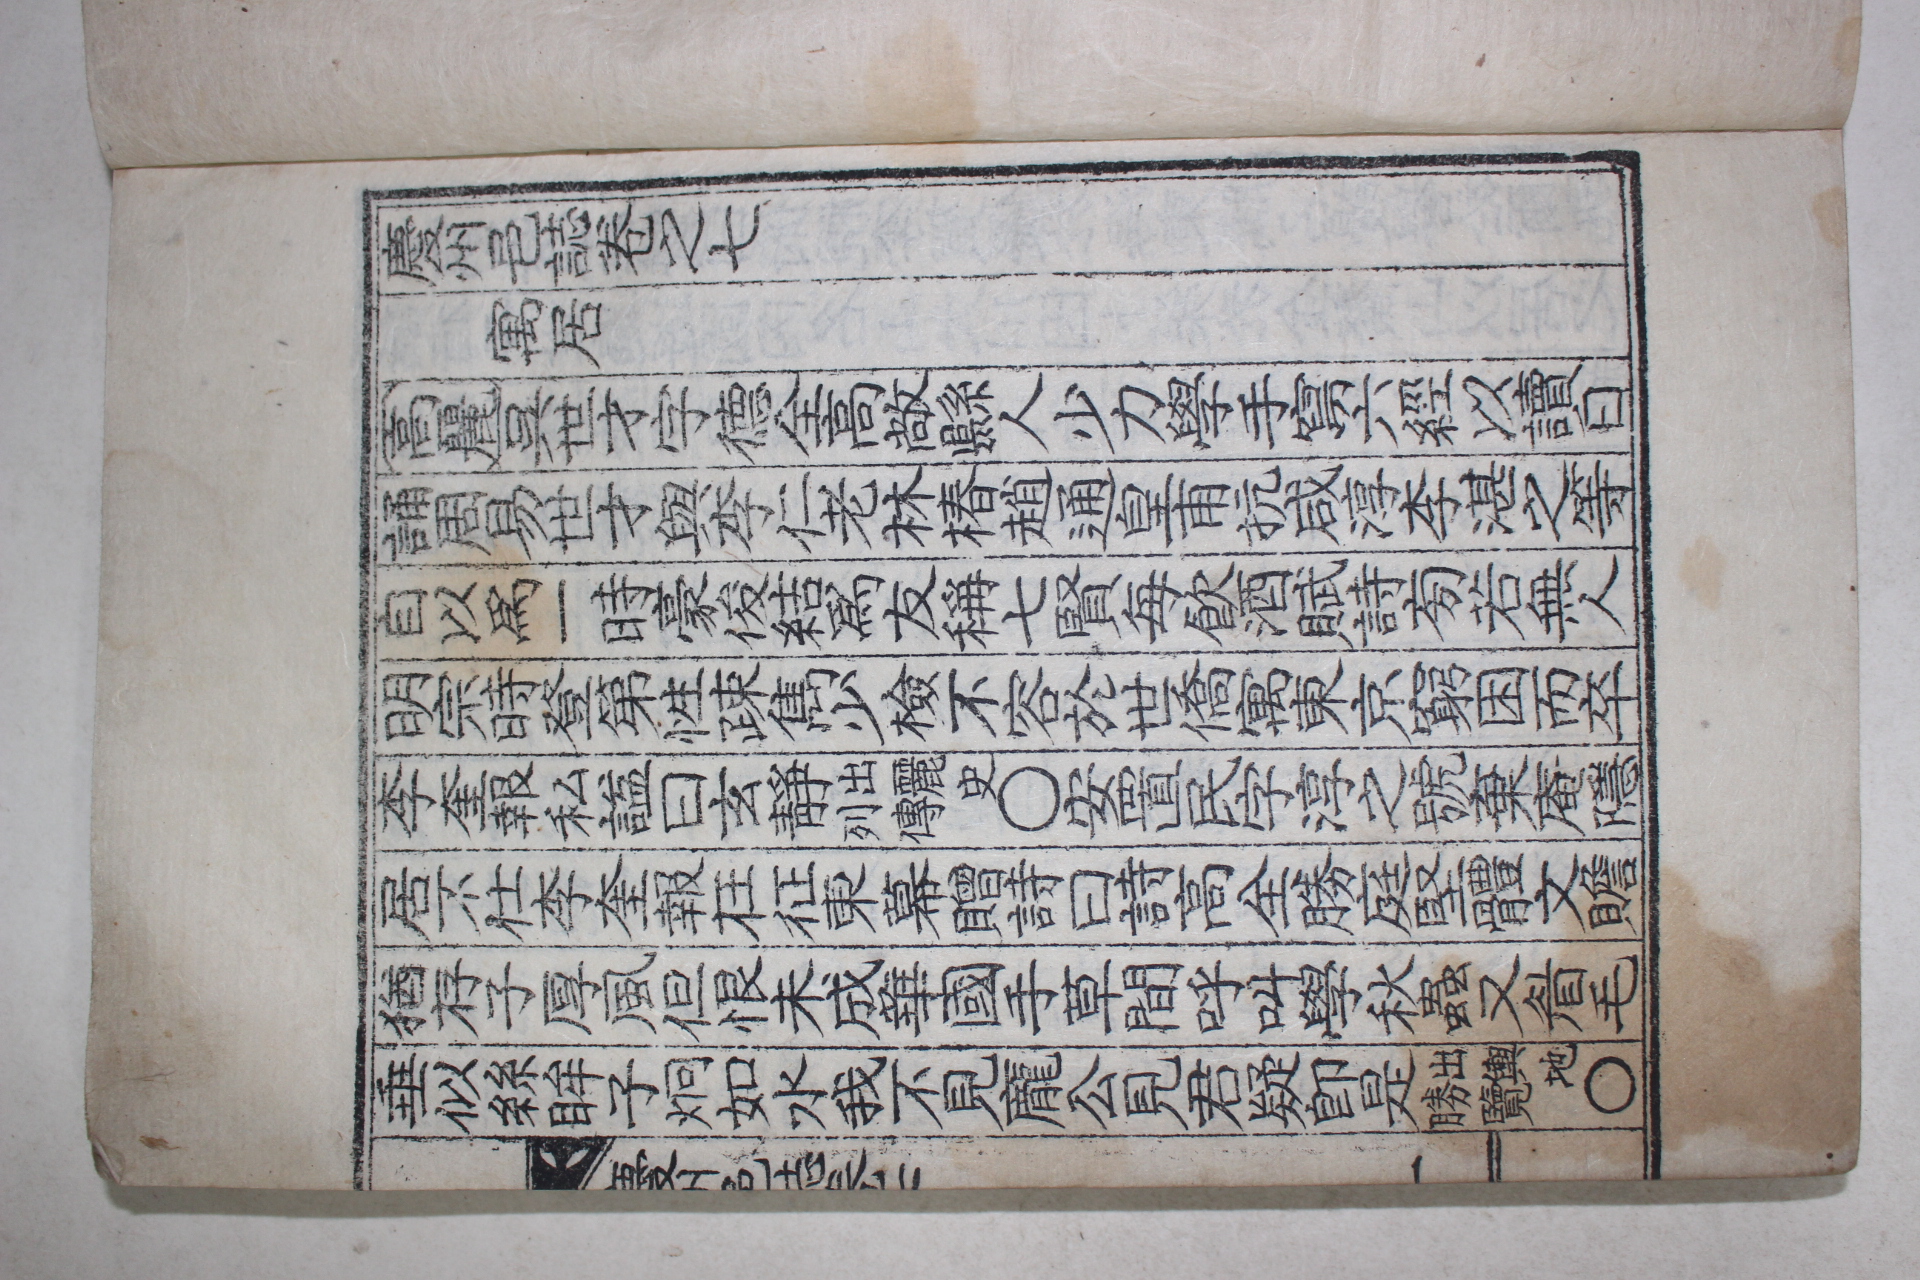 慶州邑誌卷之七
寓居
高麗吳世才字德全高敞縣人少力學手寫六經以讀日
誦周易世才與李仁老林椿趙通皇甫抗咸淳李湛之等
自以爲一時豪俊結爲友稱七賢每飮酒賦詩旁若無人
明宗時登第性疎雋少檢不容於世僑寓東京窮困而卒
李奎報私謚曰玄靜出麗史列傳○安置民字淳之號棄菴隱
居不仕李奎報在征東幕贈詩曰詩高全勝庭堅體文贍
猶存子厚風但恨未成華國手草間呼叫學秋蟲又眉毛
垂似絲眸子炯如水我不見龐公見君疑卽是出輿地勝覽○
慶州邑誌卷